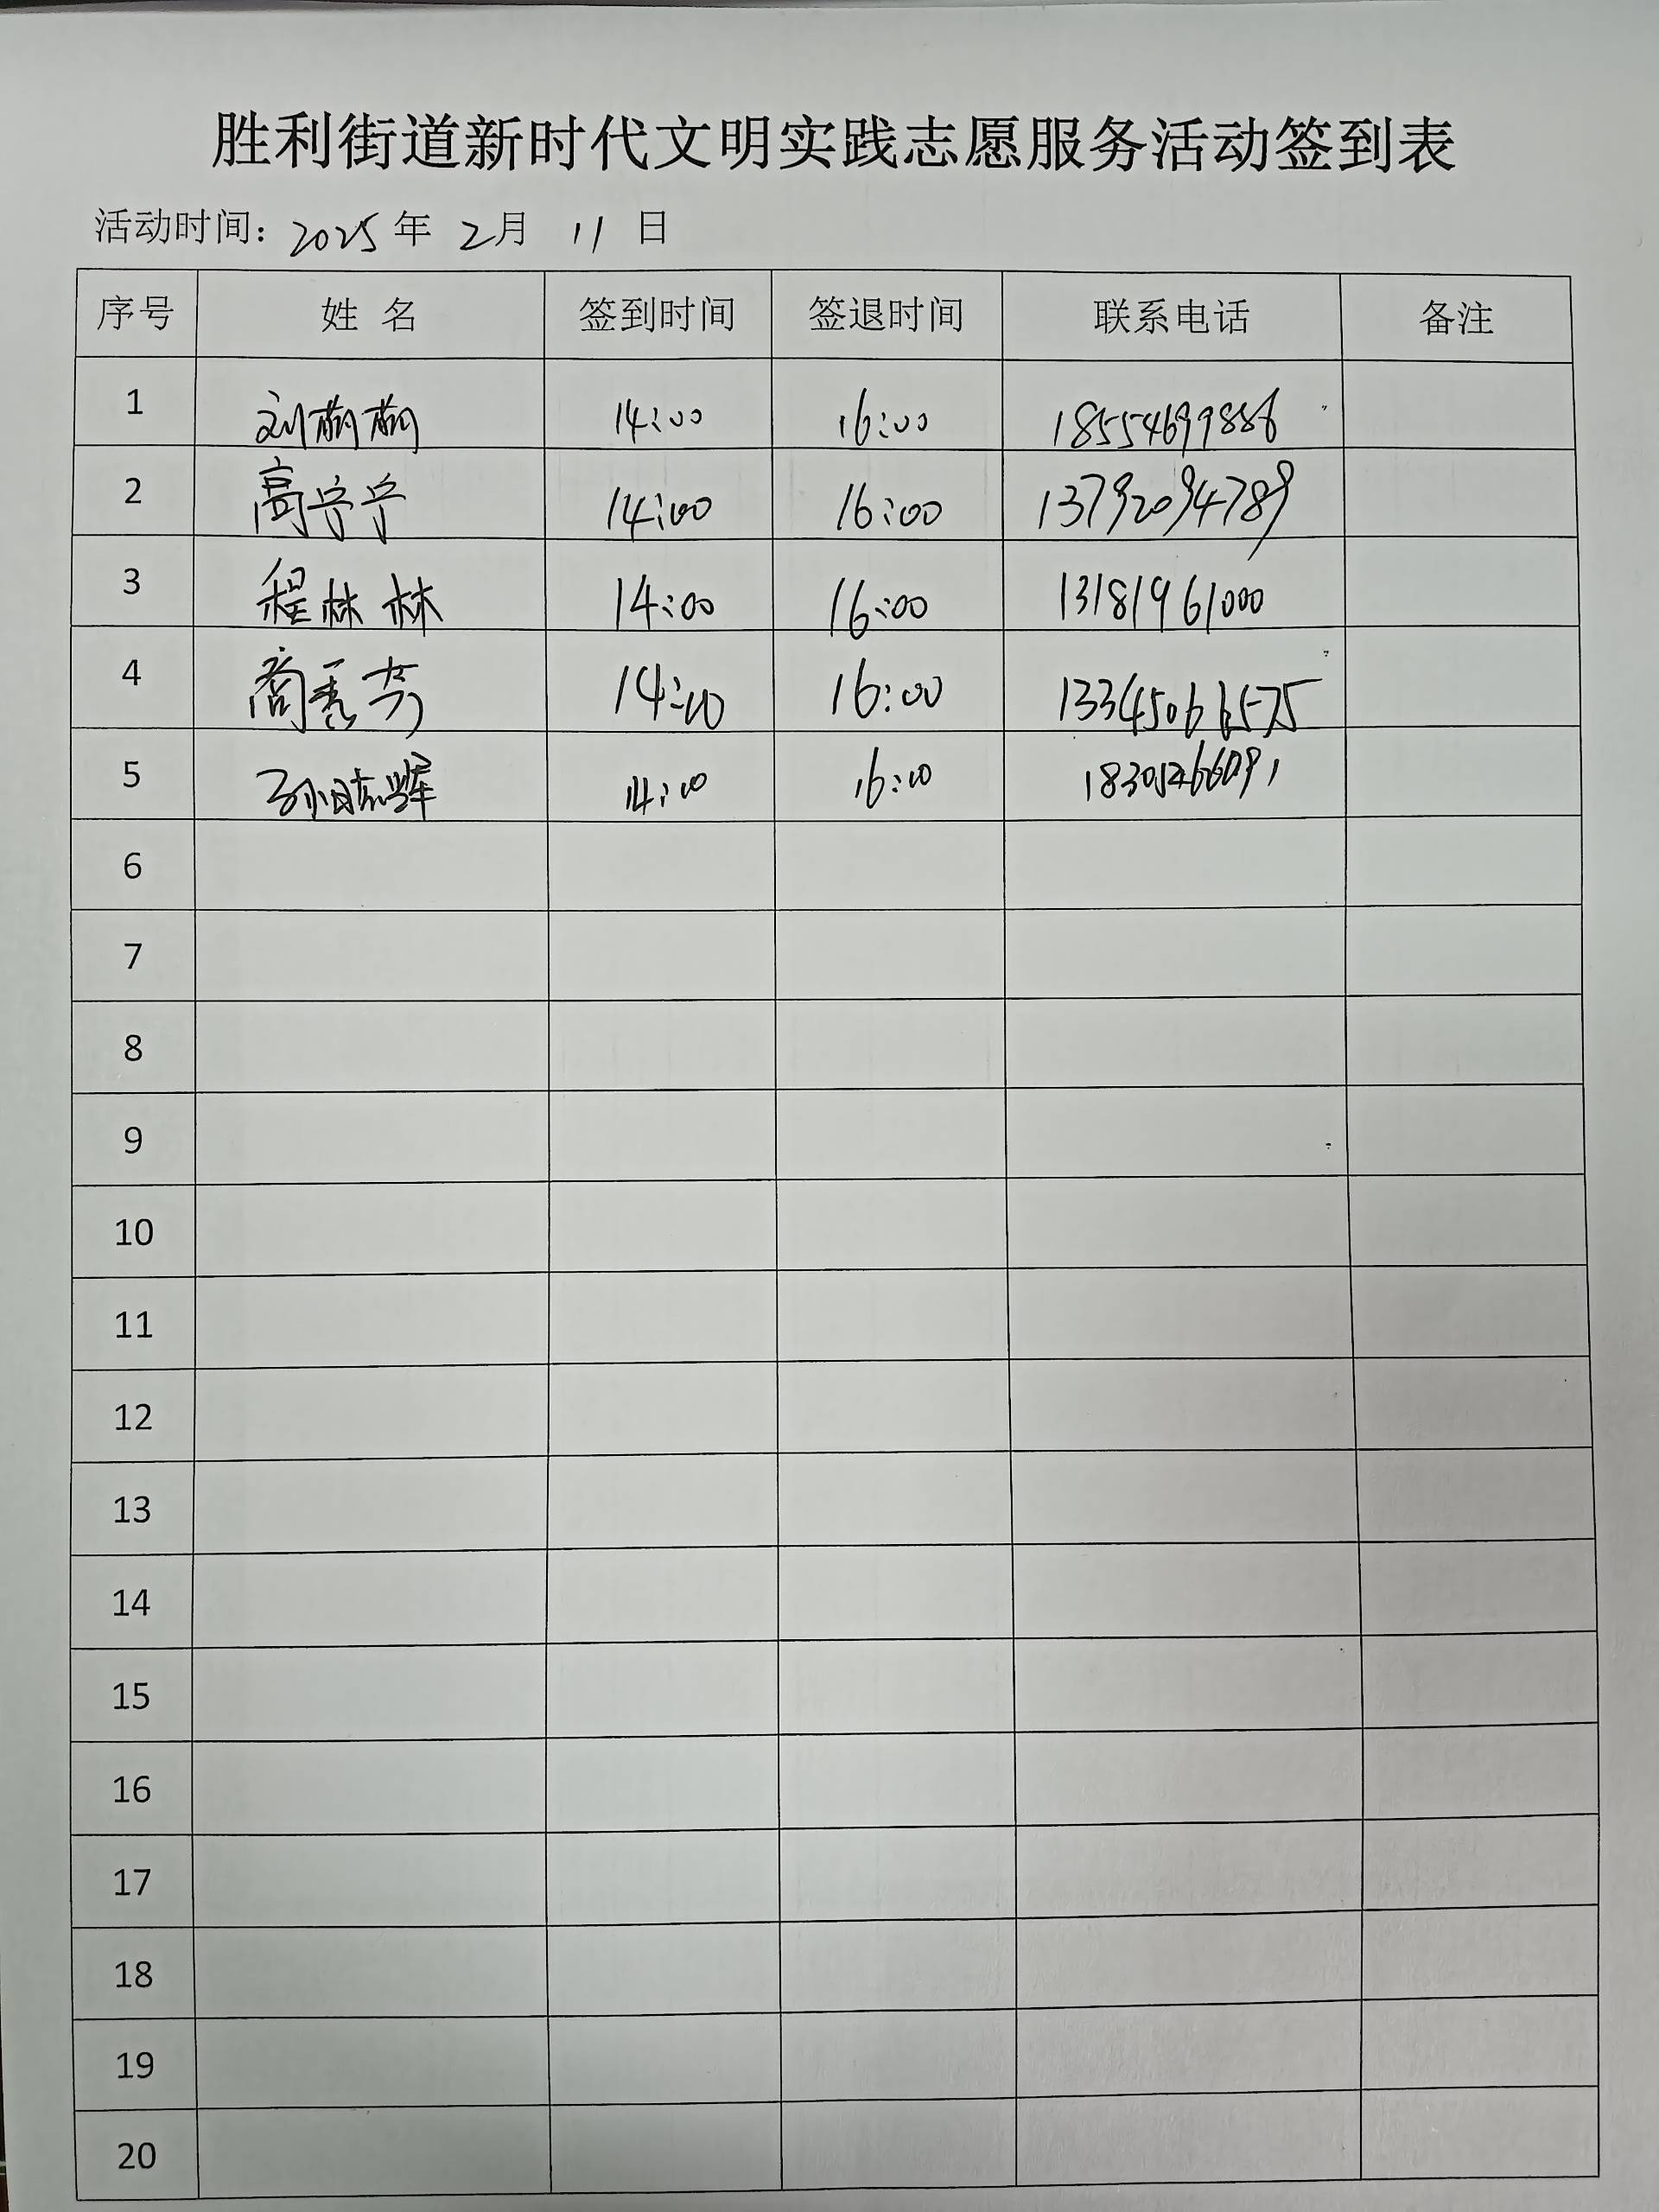 胜利街道新时代文明实践志愿服务活动签到表
活动时间: 2025 年 2 月 11 日
序号 姓 名 签到时间 签退时间 联系电话 备注
1 刘 14:00 16:00 18554699886
2 高宁宁 14:00 16:00 13792094789
3 程林林 14:00 16:00 13181961000
4 商秀芳 14:00 16:00 13345066575
5 孙 14:00 16:00
6
7
8
9
10
11
12
13
14
15
16
17
18
19
20